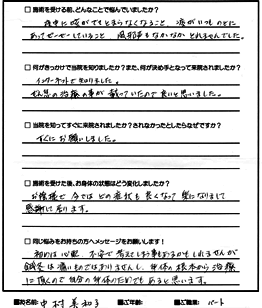 □ 施術を受ける前、どのようなことで悩んでいましたか？
夜中に咳がでてとまらなくなること 痰がいつものどに
あってゼーゼーしていること 風邪もなかなかとれませんでした。
□ 何がきっかけで当院を知りましたか？また、何が決め手となって来院されましたか？
インターネットで知りました。
の治療の事が載っていたので良いと思いました。
□ 当院を知ってすぐに来院されましたか？されなかったとしたらなぜですか？
すぐにお願いしました。
□ 施術を受けた後、お身体の状態はどう変化しましたか？
お陰様で今ではどの症状も良くなって楽になりまして
感謝して居ります。
□ 同じ悩みをお持ちの方へメッセージをお願いします！
初めは心配 不安で考えてしまう事もあるかもしれませんが
鍼灸は痛いものではありませんし、身体の根本から治療
に頂くので自分の身体のためでもあると思います。
■お名前: 中村 美和子 ■ご年齢: ■ご職業: パート